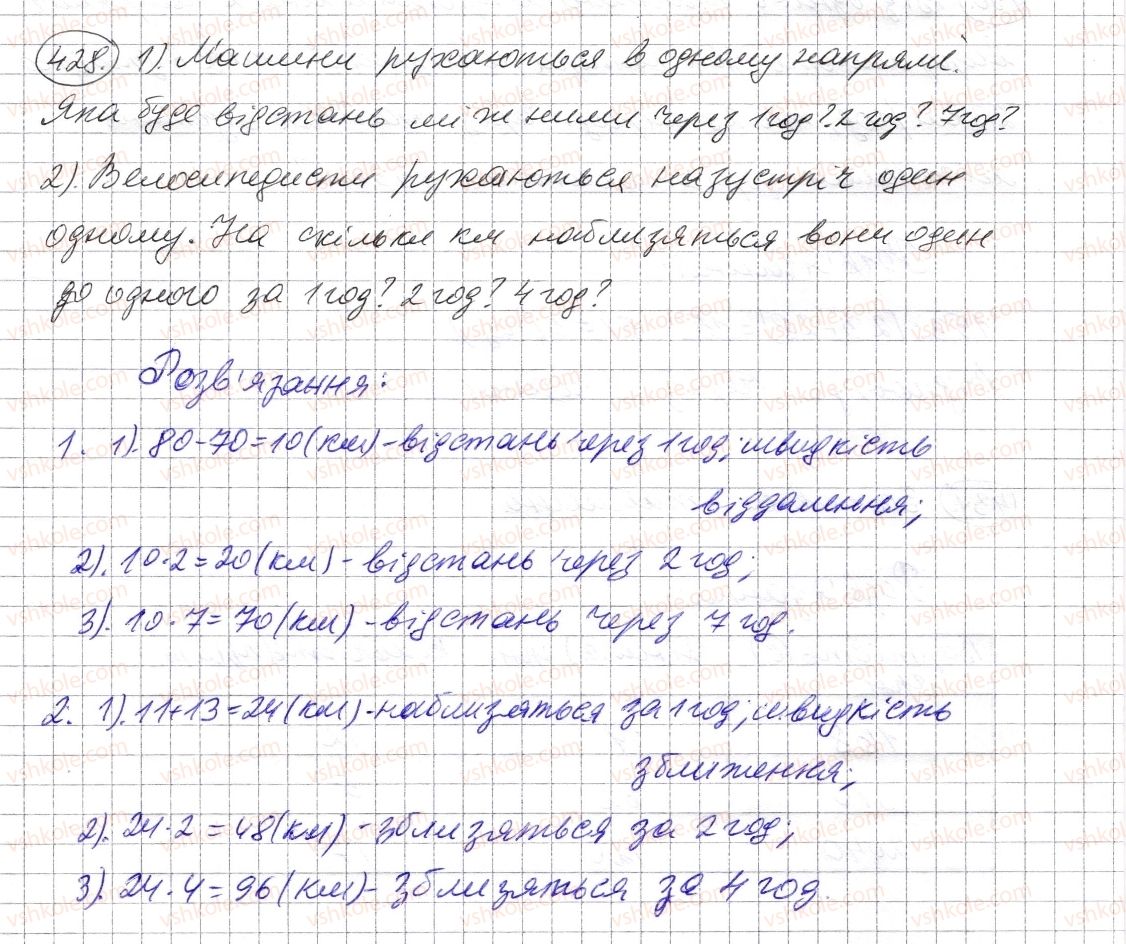 428. 1) Машини рухаються в одному напрямі.
Яка буде відстань між ними через 1 год? 2 год? 7 год?
2). Велосипедисти рухаються назустріч один
одному. На скільки км наблизяться вони один
до одного за 1 год? 2 год? 4 год?
Розв'язання:
1. 1). 80-70=10(км)-відстань через 1 год; швидкість
віддалення;
2). 10·2=20(км)-відстань через 2 год;
3). 10·7=70(км)-відстань через 7 год.
2. 1). 11+13=24(км)-наблизяться за 1 год; швидкість
зближення;
2). 24·2=48(км)-зблизяться за 2 год;
3). 24·4=96(км)-зблизяться за 4 год.